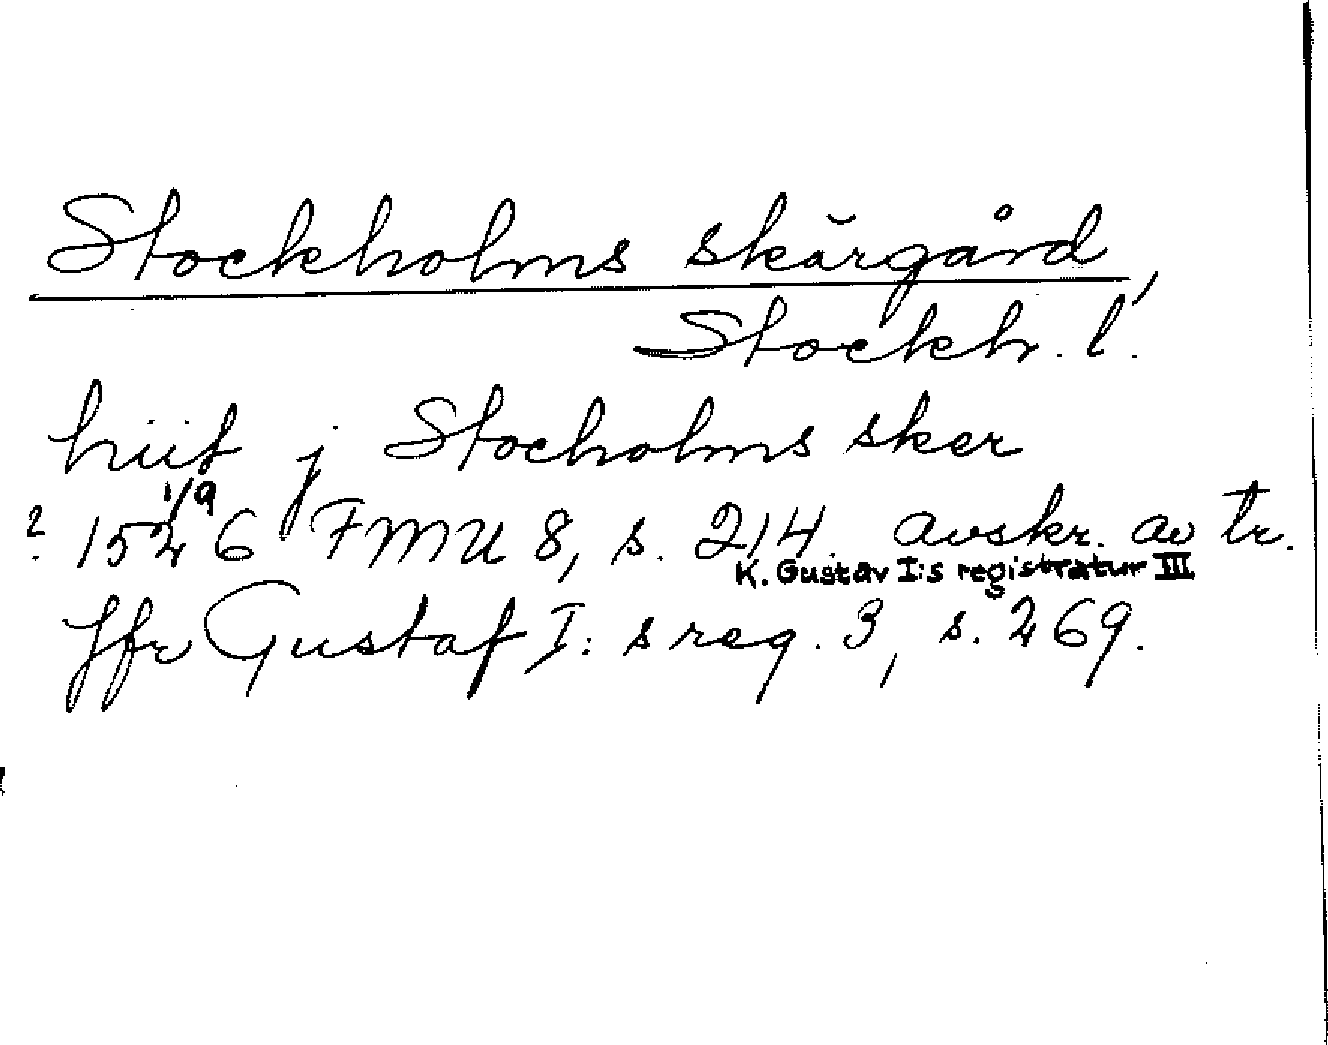 Stockholms skärgård,
Stockh. l.
hiit j Stocholms sker
1/9
? 1526 FMU 8, s. 214. avskr. av tr.
K. Gustav I:s registratur III
Jfr Gustaf I:s reg. 3, s. 269.